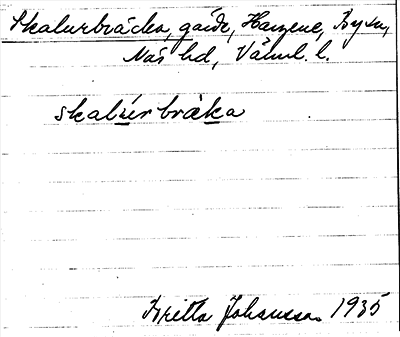 Skalurbräcka, gärde, Harzene, By sn,
Näs hd, Värml. l.
skalúrbràka
Britta Johansson 1935